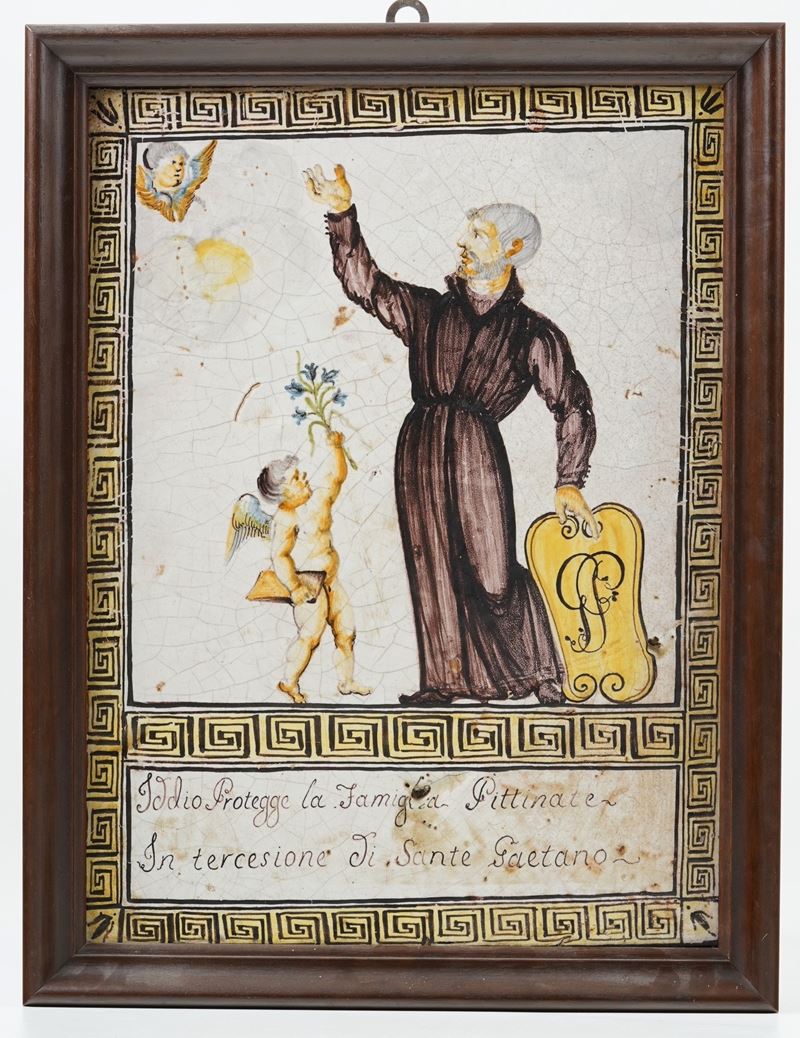 Iddio Protegge la Famiglia Pittinate
In tercesione di Sante Gaetano